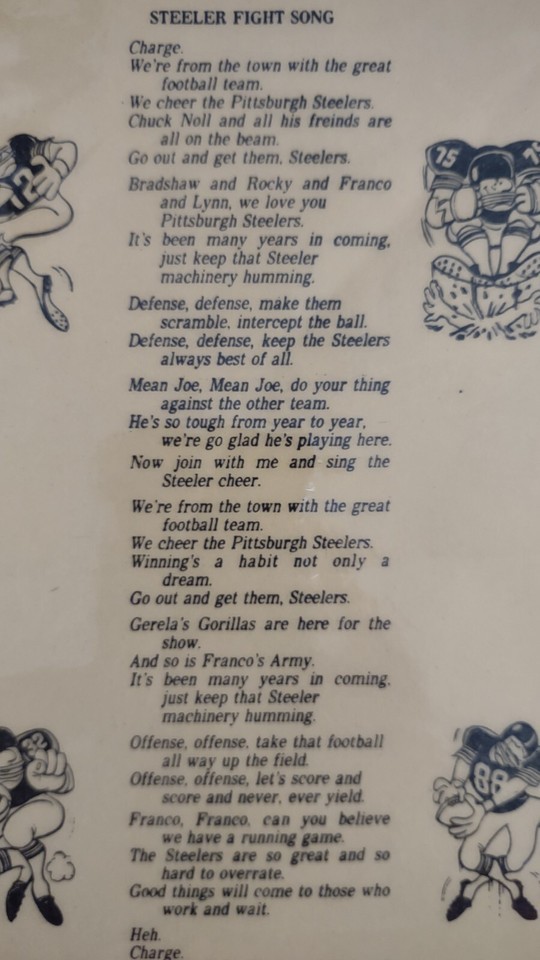 STEELER FIGHT SONG
Charge.
We're from the town with the great
football team.
We cheer the Pittsburgh Steelers.
Chuck Noll and all his freinds are
all on the beam.
Go out and get them, Steelers.
Bradshaw and Rocky and Franco
and Lynn, we love you
Pittsburgh Steelers.
It's been many years in coming,
just keep that Steeler
machinery humming.
Defense, defense, make them
scramble, intercept the ball.
Defense, defense, keep the Steelers
always best of all.
Mean Joe, Mean Joe, do your thing
against the other team.
He's so tough from year to year,
we're go glad he's playing here.
Now join with me and sing the
Steeler cheer.
We're from the town with the great
football team.
We cheer the Pittsburgh Steelers.
Winning's a habit not only a
dream.
Go out and get them, Steelers.
Gerela's Gorillas are here for the
show.
And so is Franco's Army.
It's been many years in coming,
just keep that Steeler
machinery humming.
Offense, offense, take that football
all way up the field.
Offense, offense, let's score and
score and never, ever yield.
Franco, Franco, can you believe
we have a running game.
The Steelers are so great and so
hard to overrate.
Good things will come to those who
work and wait.
Heh.
Charge.
12
75
88